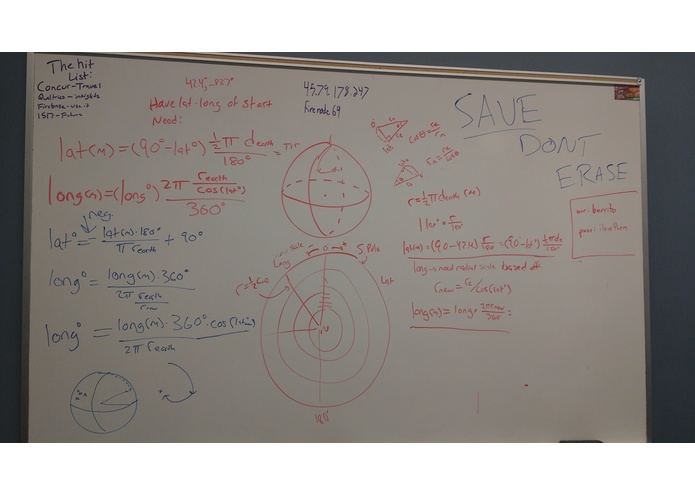 The hit
List:
Concur-Travel
Qualtrics - insights
Firebase - use it
IST7 - Future
42.4°, -82.7°
Have lat-long of start
Need:
45.79.178.247
Firenode 69
SAVE
DONT
ERASE
lat(m) = (90° - lat°) ½ π d earth / 180° = πr
long(m) = (long°) 2π r earth / cos(lat°) / 360°
neg
lat° = lat(m)·180° / π r earth + 90°
long° = long(m)·360° / 2π r earth / r new
long° = long(m)·360°·cos(lat°) / 2π r earth
cosθ = re / rn
rn = re / cosθ
r = ½ π d earth (m)
1 lat° = r / 180°
lat(m) = (90 - 42.4) r / 180° = (90 - lat°) ½ π de / 180°
long → need radial scale based off
r new = re / cos(lat°)
long(m) = long · 2π r new / 360° =
Long
0
S. Pole
Lat
180°
pass: